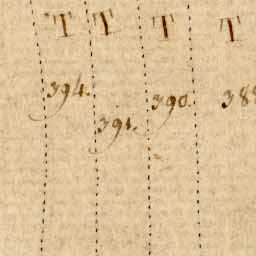 T T T T
394. 391. 390. 38